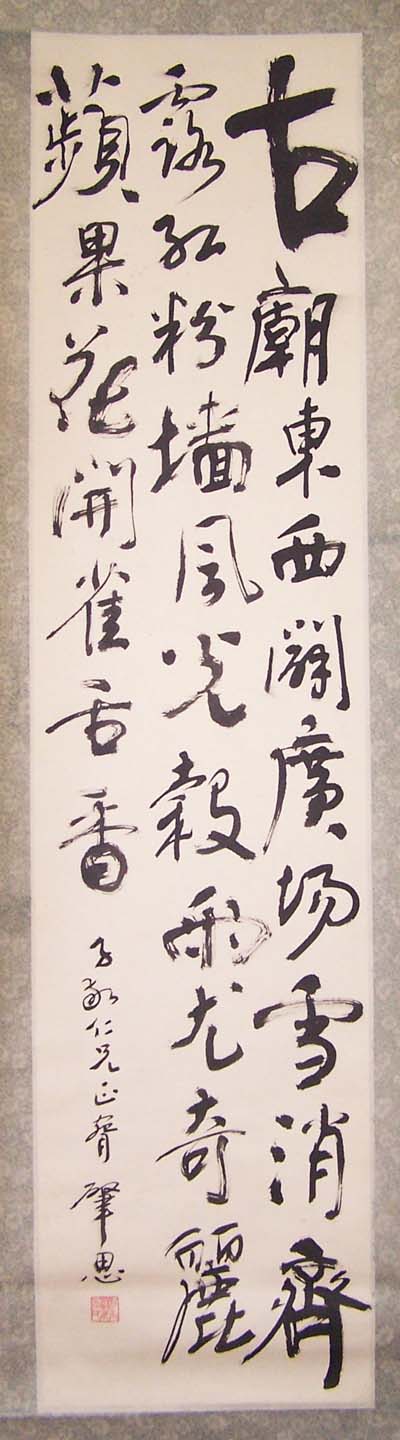 古廟東西闢廣場雪消齊
露紅粉墻風光穀雨尤奇麗
蘋果花開雀舌香
子敬仁兄正腕 肇思